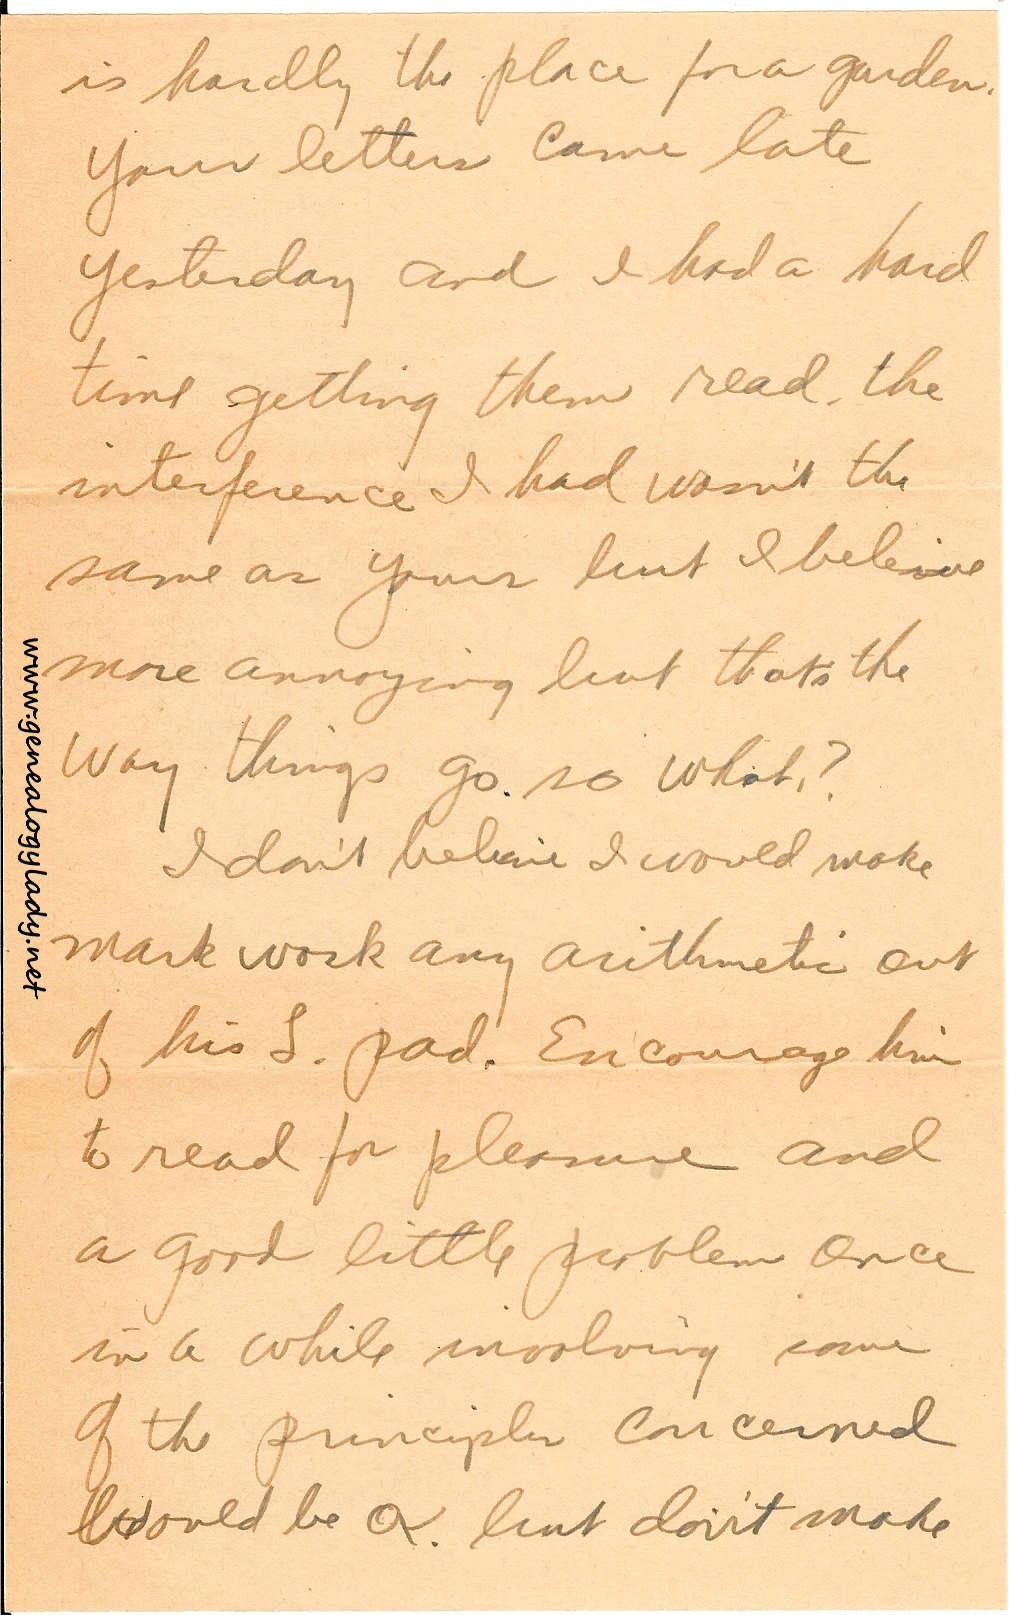 is hardly the place for a garden.
Your letters came late
yesterday and I had a hard
time getting them read. the
interference I had wasn't the
same as yours but I beleive
more annoying but that's the
way things go. so what?
I don't beleive I would make
Mark work any arithmetic out
of his S. pad. Encourage him
to read for pleasure and
a good little problem once
in a while involving some
of the principles concerned
would be OK. but don't make
www.genealogylady.net